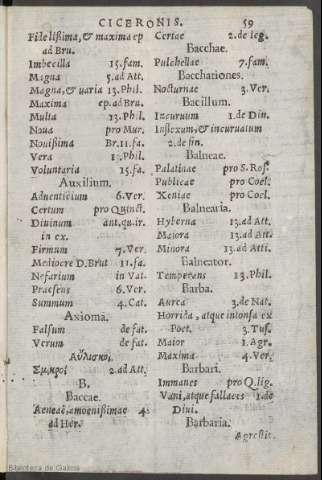 CICERONIS. 59
Fidelissima, & maxima ep
ad Bru.
Imbecilla 15. fam.
Magna 5. ad Att.
Magna, & uaria 13. Phil.
Maxima ep. ad Bru.
Multa 13. Phil.
Noua pro Mur.
Nouissima Br. 11. fa.
Vera 13. Phil.
Voluntaria 15. fa.
Auxilium.
Aduenticium 6. Ver.
Certum pro Quincti.
Diuinum ant. qu. ir.
in ex.
Firmum 7. Ver.
Mediocre D. Brut 11. fa.
Nefarium in Vat.
Praesens 6. Ver.
Summum 4. Cat.
Axioma.
Falsum de fat.
Verum de fat.
Αὐλισκοι.
Σμικροὶ 2. ad Att.
B.
Baccae.
Aeneae, amoenissimae 4.
ad Her.
Certae 2. de leg.
Bacchae.
Pulchellae 7. fam.
Bacchationes.
Nocturnae 3. Ver.
Bacillum.
Incuruum 1. de Din.
Inflexum, & incuruatum
2. de fin.
Balneae.
Palatinae pro S. Ros.
Publicae pro Coel.
Xeniae pro Coel.
Balnearia.
Hyberna 13. ad Att.
Maiora 13. ad Att.
Minora 13. ad Atti.
Balneator.
Temperans 13. Phil.
Barba.
Aurea 3. de Nat.
Horrida, atque intonsa ex
Poet. 3. Tus.
Maior 1. Agr.
Maxima 4. Ver.
Barbari.
Immanes pro Q. lig.
Vani, atque fallaces 1. de
Diui.
Barbaria.
Agrestis.
Biblioteca de Galicia